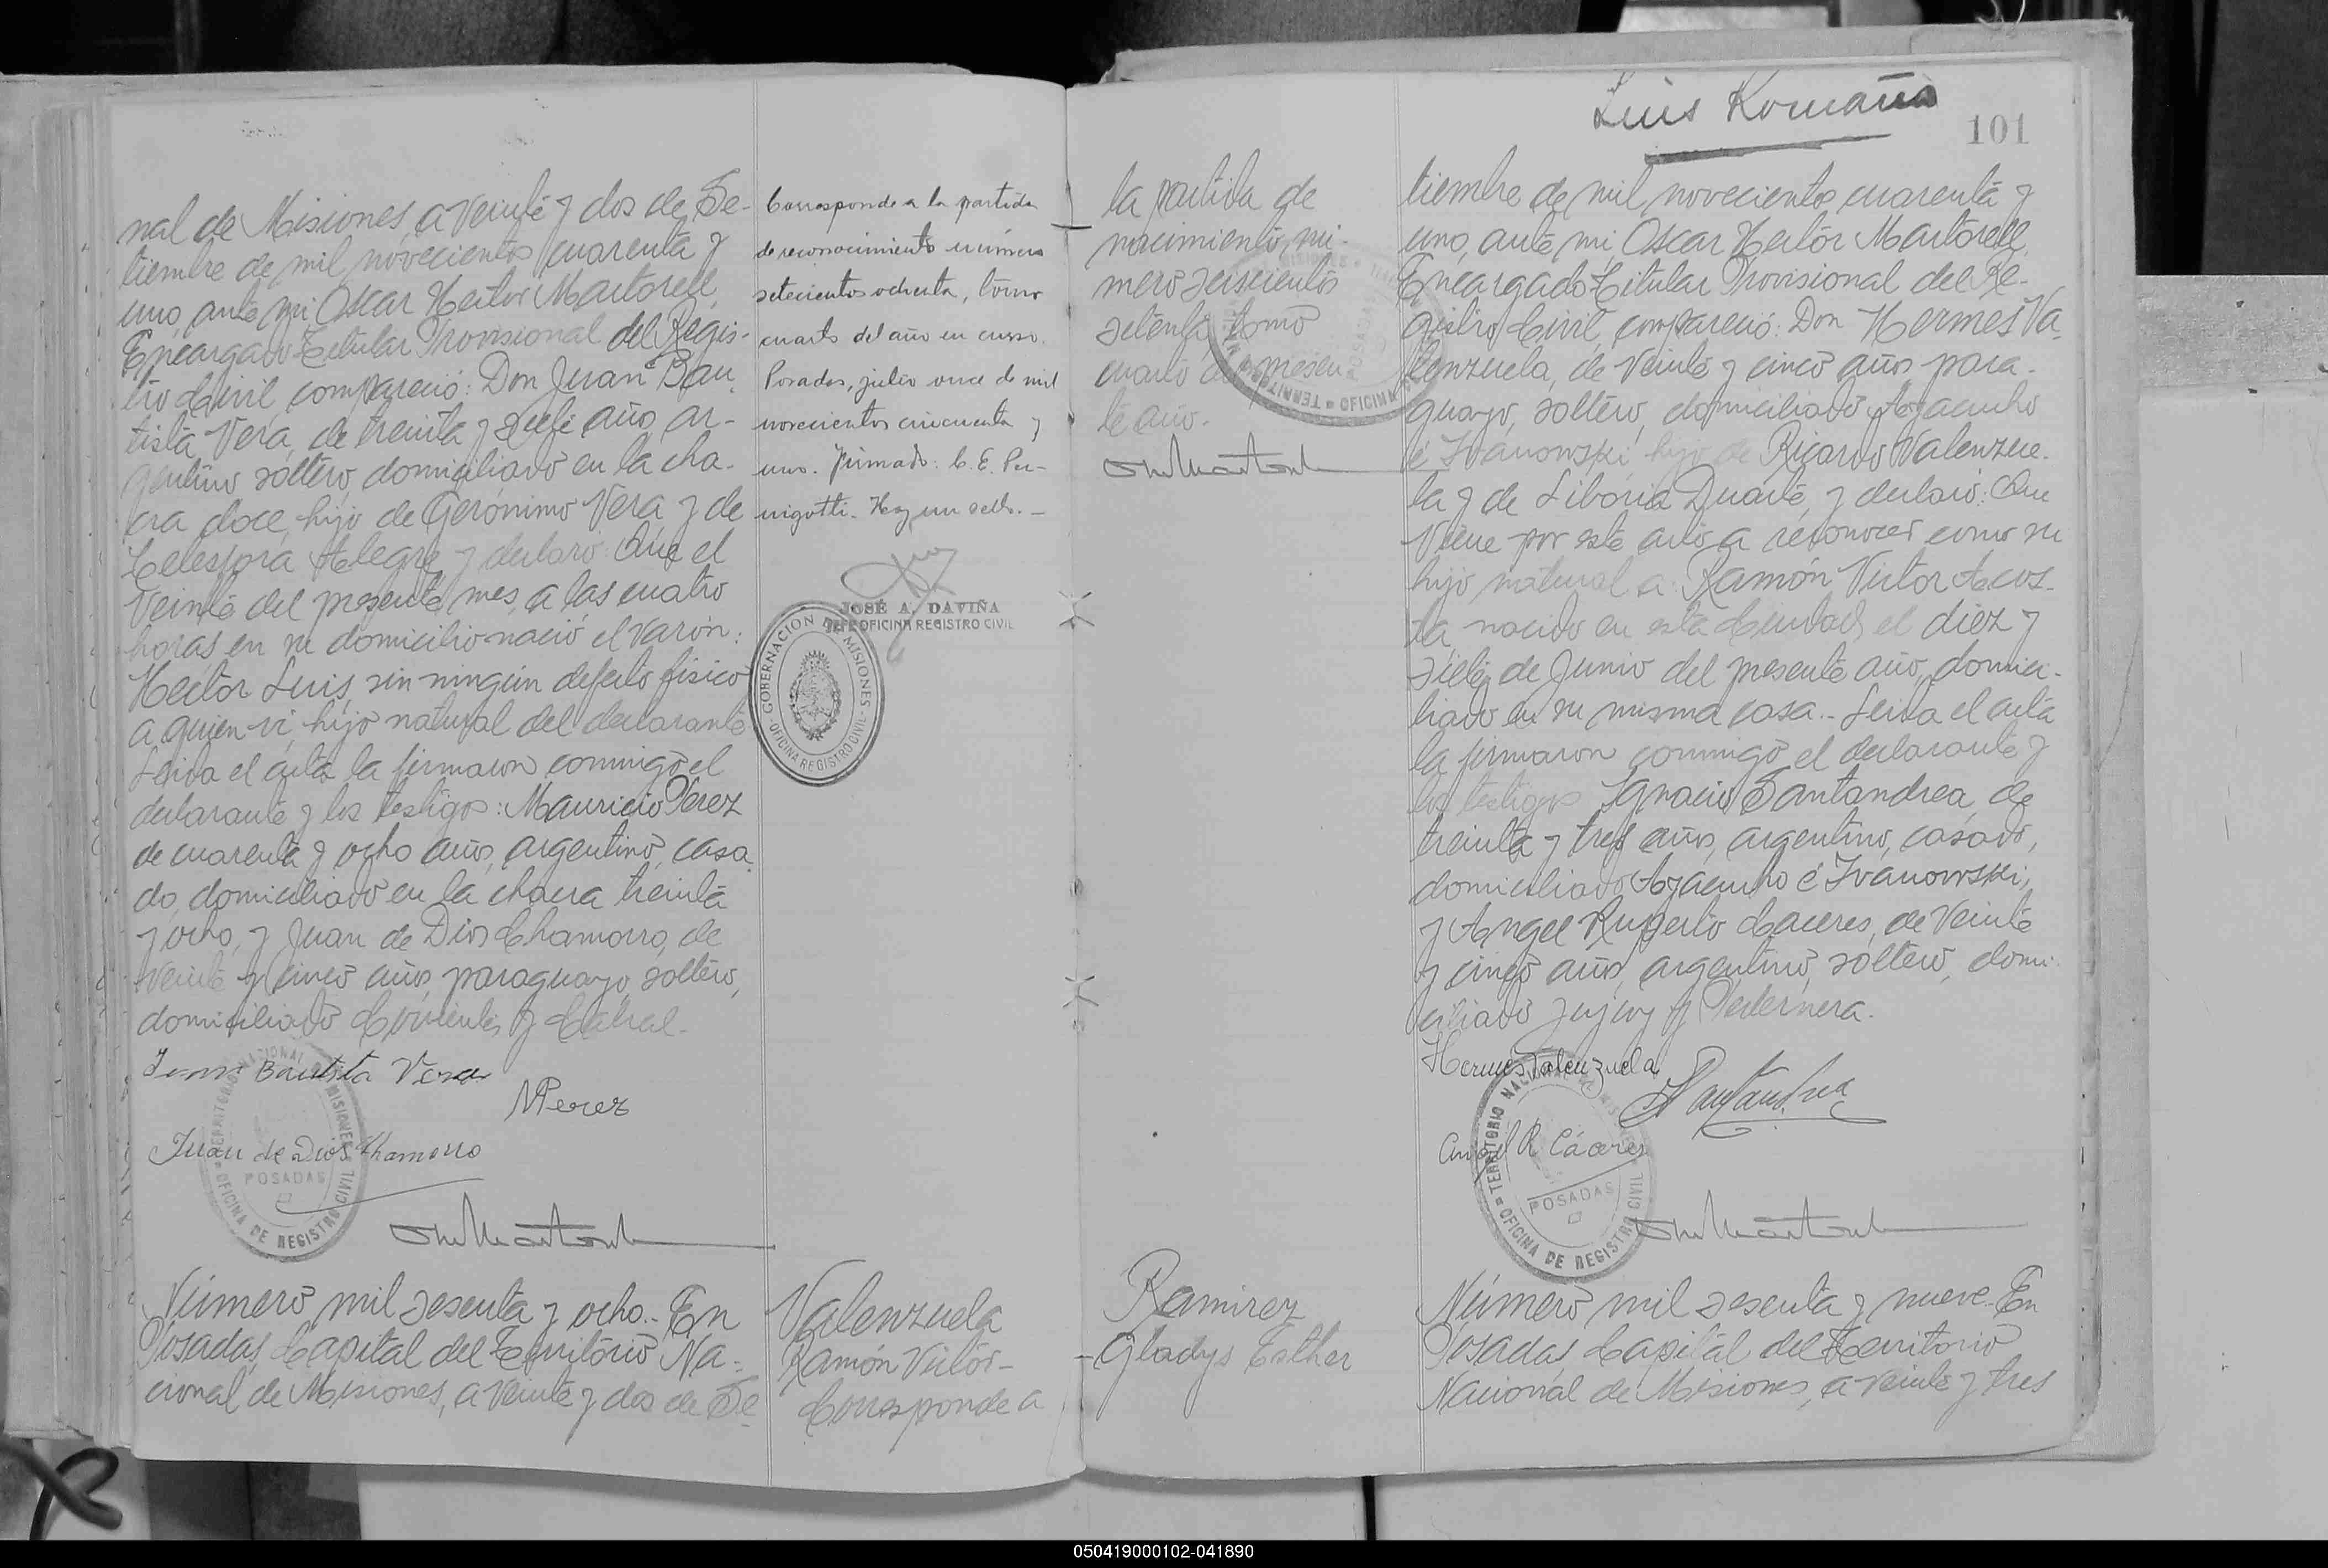 nal de Misiones, a veinte y dos de Se-
tiembre de mil novecientos cuarenta y
uno, ante mi Oscar Hector Martorell,
Encargado Titular Provisional del Regis-
tro Civil, compareció: Don Juan Bau-
tista Vera, de treinta y siete años, ar-
gentino, soltero, domiciliado en la cha-
cra doce, hijo de Gerónimo Vera y de
Alegre, y declaró: Que el
veinte del presente mes, a las cuatro
horas en su domicilio nació el varón:
Hector Luis, sin ningún defecto físico
a quien vi, hijo natural del declarante
Leida el acta la firmaron conmigo el
declarante y los testigos: Mauricio Perez
de cuarenta y ocho años, argentino, casa-
do, domiciliado en la chacra treinta
y ocho, y Juan de Dios Chamorro, de
veinte y cinco años, paraguayo, soltero,
domiciliado Corrientes y Cabral.-
Juan Bautista Vera
MPerez
Juan de Dios Chamorro
TERRITORIO NACIONAL DE MISIONES
POSADAS
OFICINA DE REGISTRO CIVIL
Número mil sesenta y ocho.- En
Posadas, Capital del Territorio Na-
cional de Misiones, a veinte y dos de Se-
Corresponde a la partida
de reconocimiento número
setecientos ochenta, tomo
cuarto del año en curso.
Posadas, julio once de mil
novecientos cincuenta y
uno. Firmado: C. E. Per-
nigotti. Hay un sello.-
JOSÉ A. DAVIÑA
JEFE OFICINA REGISTRO CIVIL
GOBERNACION DE MISIONES
OFICINA REGISTRO CIVIL
Valenzuela
Ramón Victor-
Corresponde a
la partida de
nacimiento, nú-
mero seiscientos
setenta, tomo
cuarto del presen-
te año.-
Ramirez
Gladys Esther
Luis Romaña
101
tiembre de mil novecientos cuarenta y
uno, ante mi, Oscar Hector Martorell,
Encargado Titular Provisional del Re-
gistro Civil, compareció: Don Hermes Va-
lenzuela, de veinte y cinco años, para-
guayo, soltero, domiciliado Ayacucho
é Ivanowski, hijo de Ricardo Valenzue-
la y de Liboria Duarte, y declaró: Que
viene por este acto a reconocer como su
hijo natural a: Ramón Victor Acos-
ta, nacido en esta Ciudad, el diez y
siete de Junio del presente año, domici-
liado en su misma casa.- Leida el acta
la firmaron conmigo el declarante y
los testigos Ignacio Santandrea, de
treinta y tres años, argentino, casado,
domiciliado Ayacucho é Ivanowski,
y Angel Ruperto Caceres, de veinte
y cinco años, argentino, soltero, domi-
ciliado Jujuy y Pedernera.-
Hermes Valenzuela
Santandrea
Angel R Cáceres
TERRITORIO NACIONAL DE MISIONES
POSADAS
OFICINA DE REGISTRO CIVIL
Número mil sesenta y nueve.- En
Posadas, Capital del Territorio
Nacional de Misiones, a veinte y tres
050419000102-041890